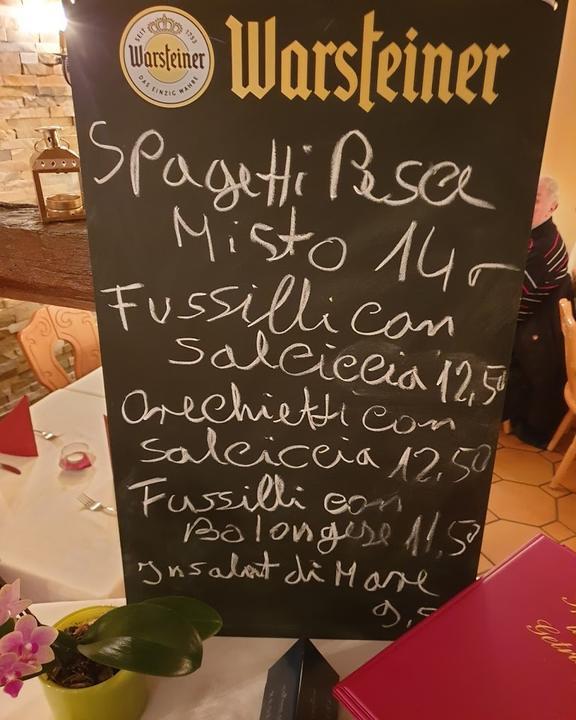 SEIT 1753
Warsteiner
DAS EINZIG WAHRE
Warsteiner
Spagetti Pesce
Misto 14,-
Fussilli con
Salciccia 12,50
Orechietti con
Salciccia 12,50
Fussilli con
Bolongese 11,50
Insalat di Mare
9,5
Getr